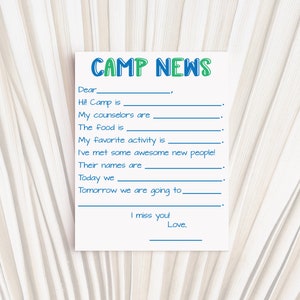 CAMP NEWS
Dear____________,
Hi! Camp is ________________,
My counselors are ___________,
The food is ________________,
My favorite activity is ________,
I've met some awesome new people!
Their names are _____________,
Today we _________________,
Tomorrow we are going to_______
__________________________,
I miss you!
Love,
_________